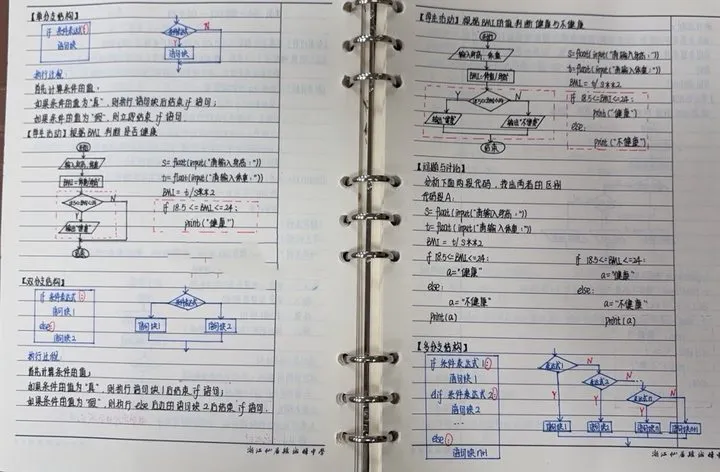 【单分支结构】
if 条件表达式:
语句块
条件表达式
N
Y
语句块
执行过程:
首先计算条件的值,
如果条件的值为"真",则执行语句块后结束 if 语句;
如果条件的值为"假",则立即结束 if 语句.
【学生活动】根据BMI 判断是否健康
开始
输入身高、体重
N
Y
输出"健康"
结束
s= float(input("请输入身高:"))
t= float(input("请输入体重:"))
BMI = t/s**2
if 18.5<=BMI<=24:
print("健康")
【双分支结构】
if 条件表达式:
语句块1
else:
语句块2
条件表达式
语句块1
语句块2
执行过程:
首先计算条件的值,
如果条件的值为"真",则执行语句块1后结束 if 语句;
如果条件的值为"假",则执行 else 后边的语句块2后结束 if 语句.
【学生活动】根据BMI的值判断健康与不健康
开始
输入身高、体重
Y
N
输出"健康"
输出"不健康"
结束
s= float(input("请输入身高:"))
t= float(input("请输入体重:"))
BMI = t/s**2
if 18.5<=BMI<=24:
print("健康")
else:
print("不健康")
【问题与讨论】
分析下面两段代码,找出两者的区别
代码段A:
s= float(input("请输入身高:"))
t= float(input("请输入体重:"))
BMI = t/s**2
if 18.5<=BMI<=24:
a="健康"
else:
a="不健康"
print(a)
if 18.5<=BMI<=24:
a="健康"
else:
a="不健康"
print(a)
【多分支结构】
if 条件表达式1:
语句块1
elif 条件表达式2:
语句块2
...
else:
语句块n+1
表达式1
N
表达式2
N
表达式n
N
Y
Y
Y
语句块1
语句块2
语句块n
语句块n+1